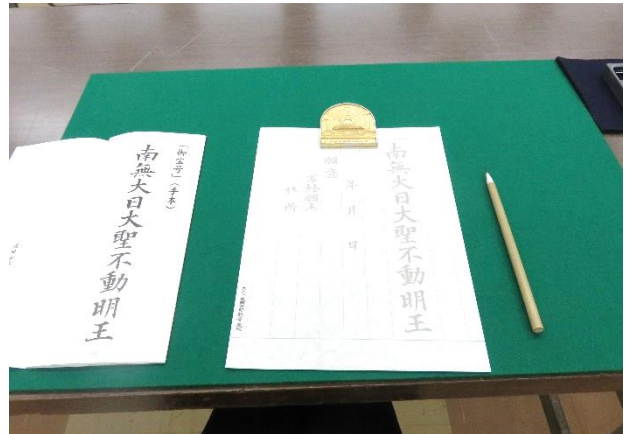 「御宝号」(手本)
南無大日大聖不動明王
南無大日大聖不動明王
年 月 日
願意
住所